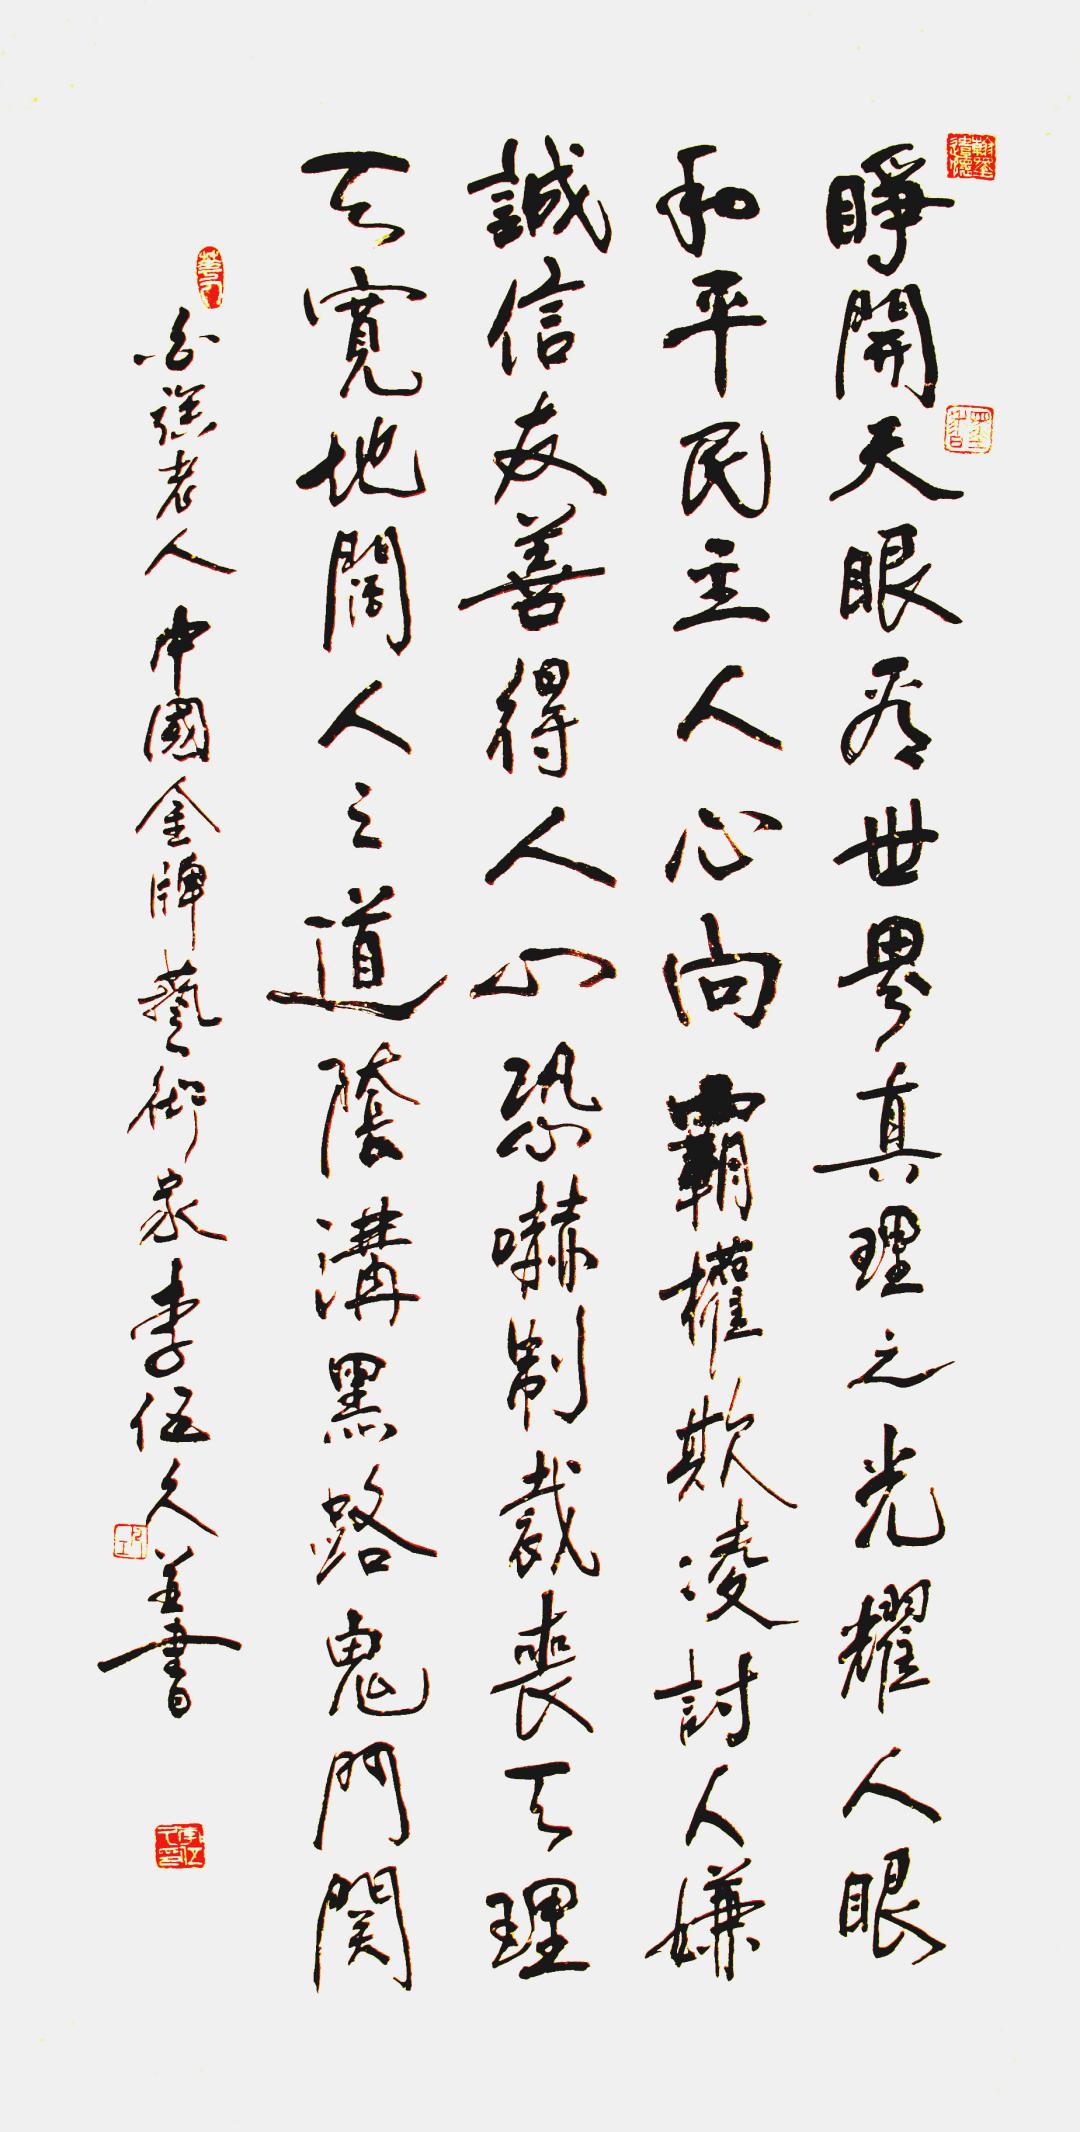 睜開天眼看世界真理之光耀人眼
和平民主人心向霸權欺凌討人嫌
誠信友善得人心恐嚇制裁喪天理
天寬地闊人之道陰溝黑路鬼門関
老人中國金牌藝術家李伍久並書